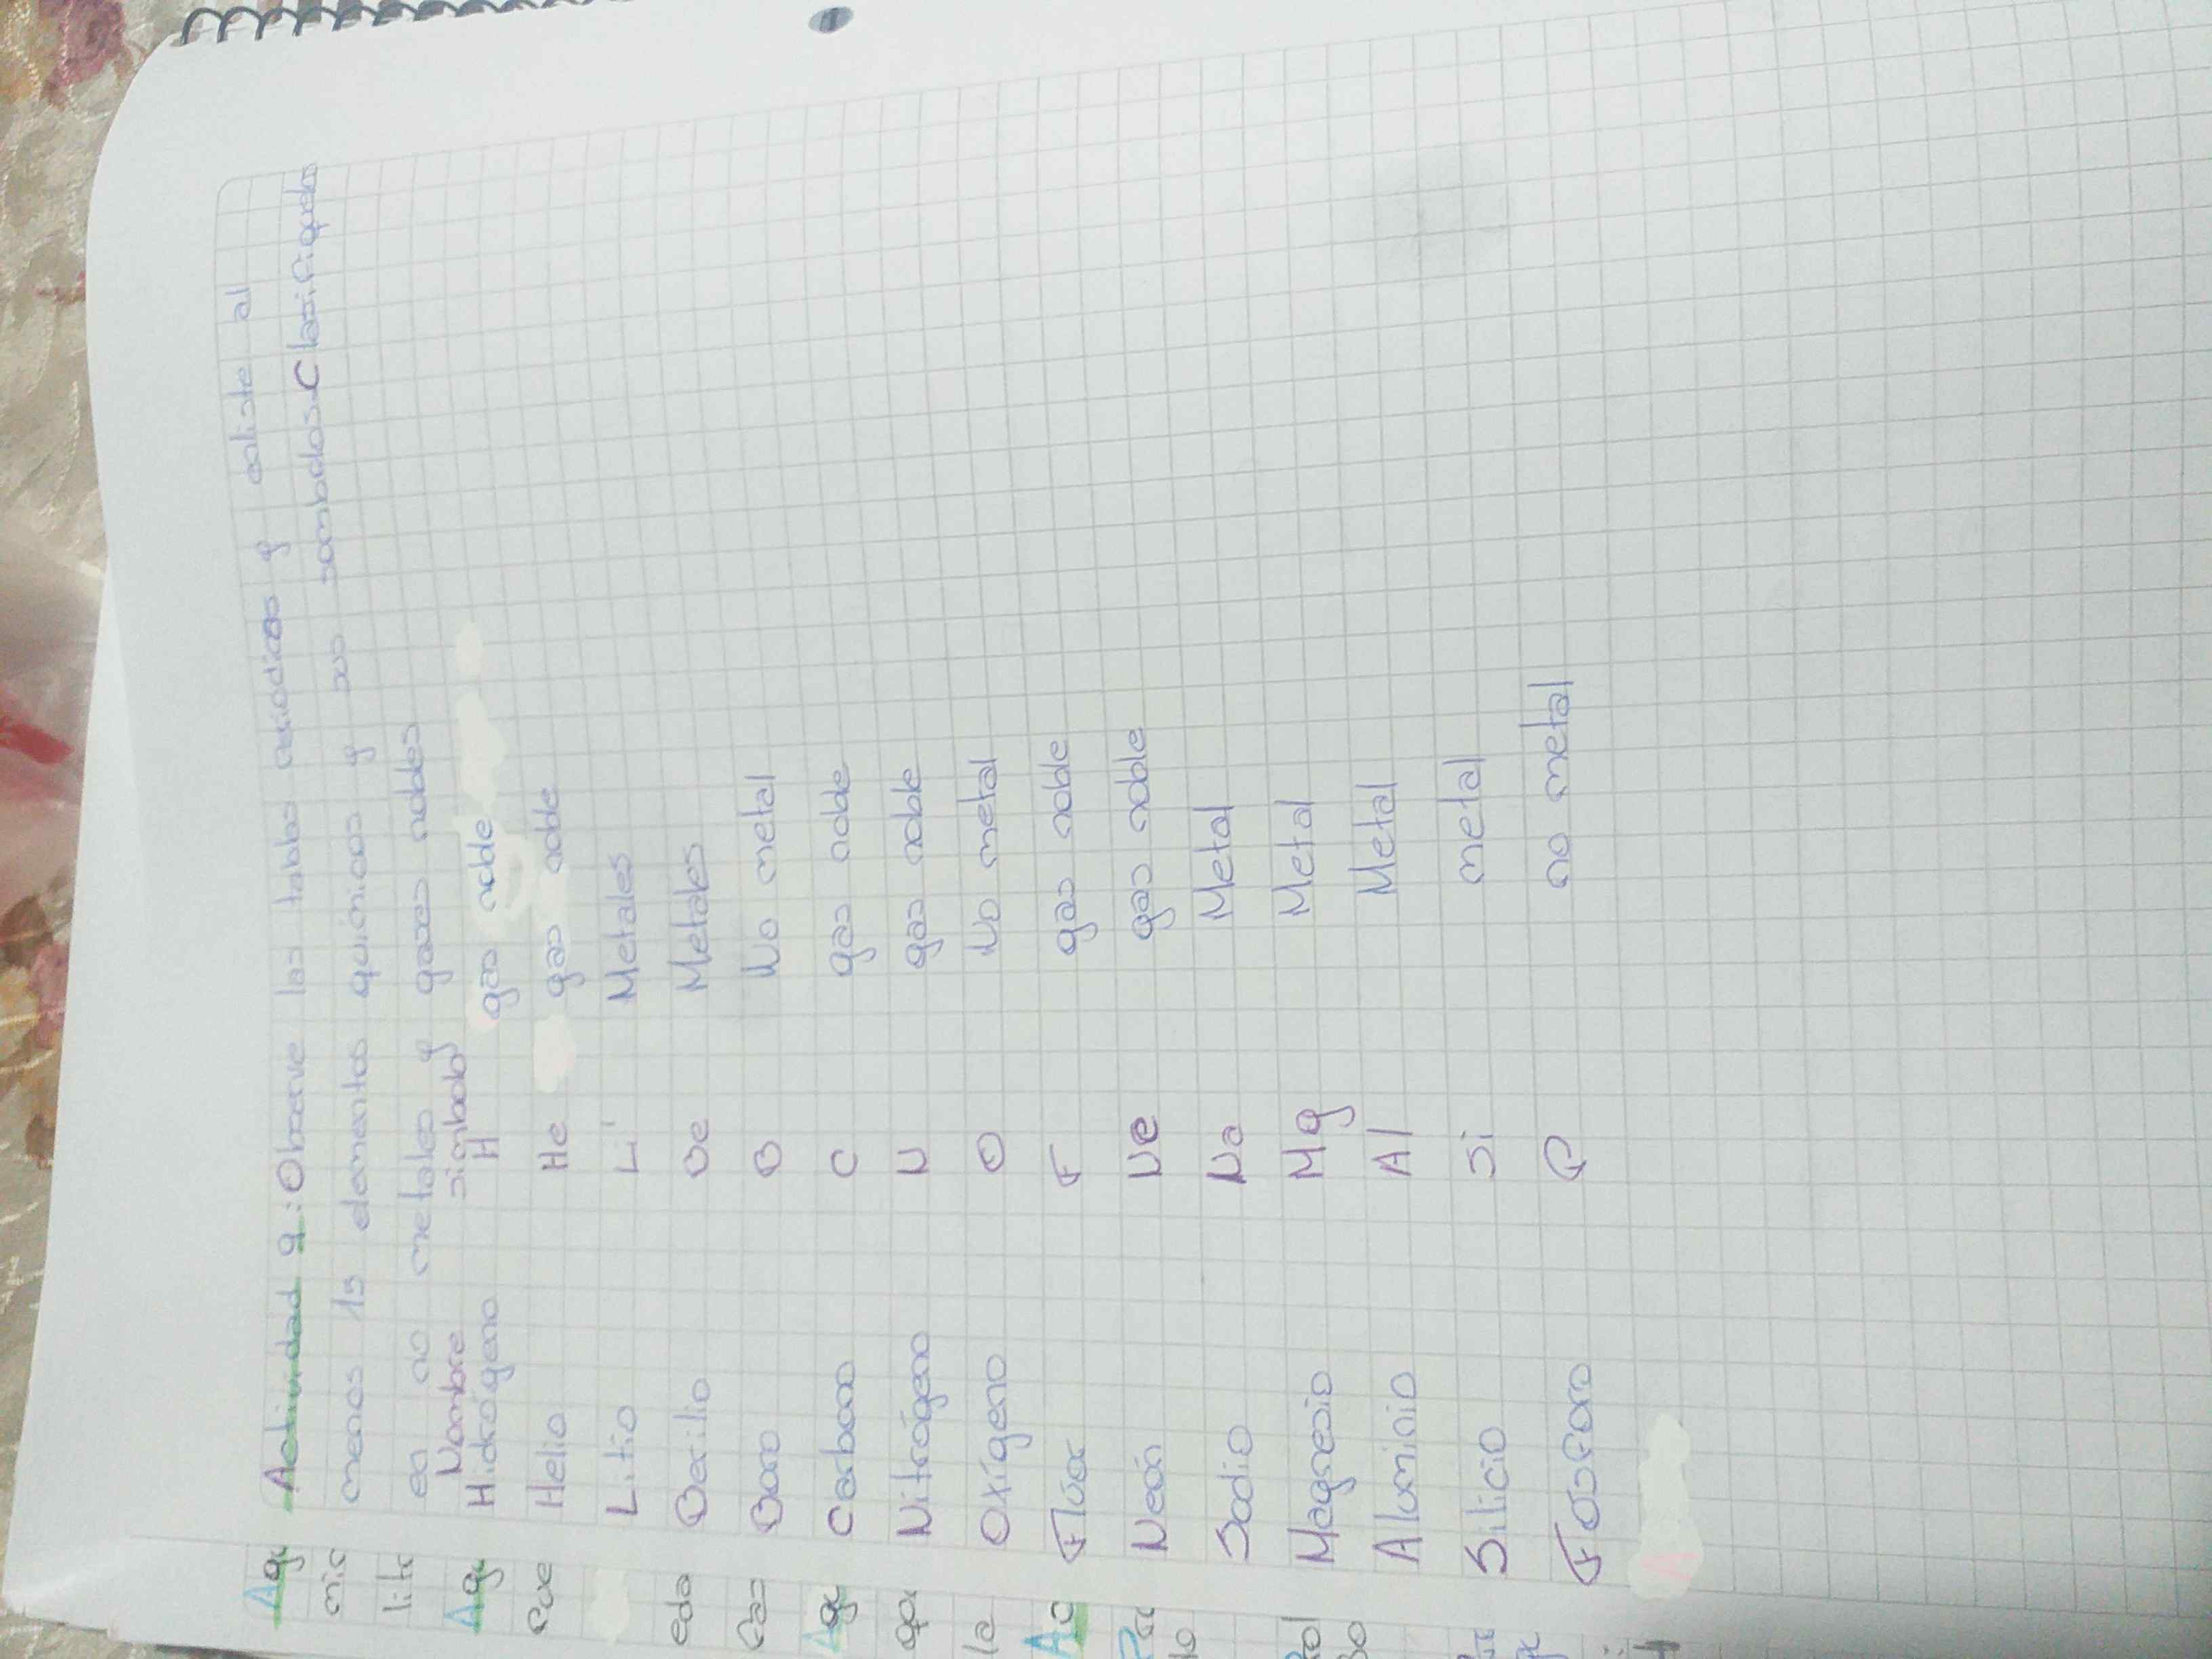 Actividad 9: Observe las tablas periodicas y enliste al
menos 15 elementos quimicos y sus sombolos. Clasifiquelos
en no metales y gases nobles
Nombre simbolo
Hidrógeno H gas noble
Helio He gas noble
Litio Li Metales
Berilio Be Metales
Boro B No metal
Carbono C gas noble
Nitrógeno N gas noble
Oxígeno O No metal
Flúor F gas noble
Neón Ne gas noble
Sodio Na Metal
Magnesio Mg Metal
Aluminio Al Metal
Silicio Si metal
Fósforo P no metal